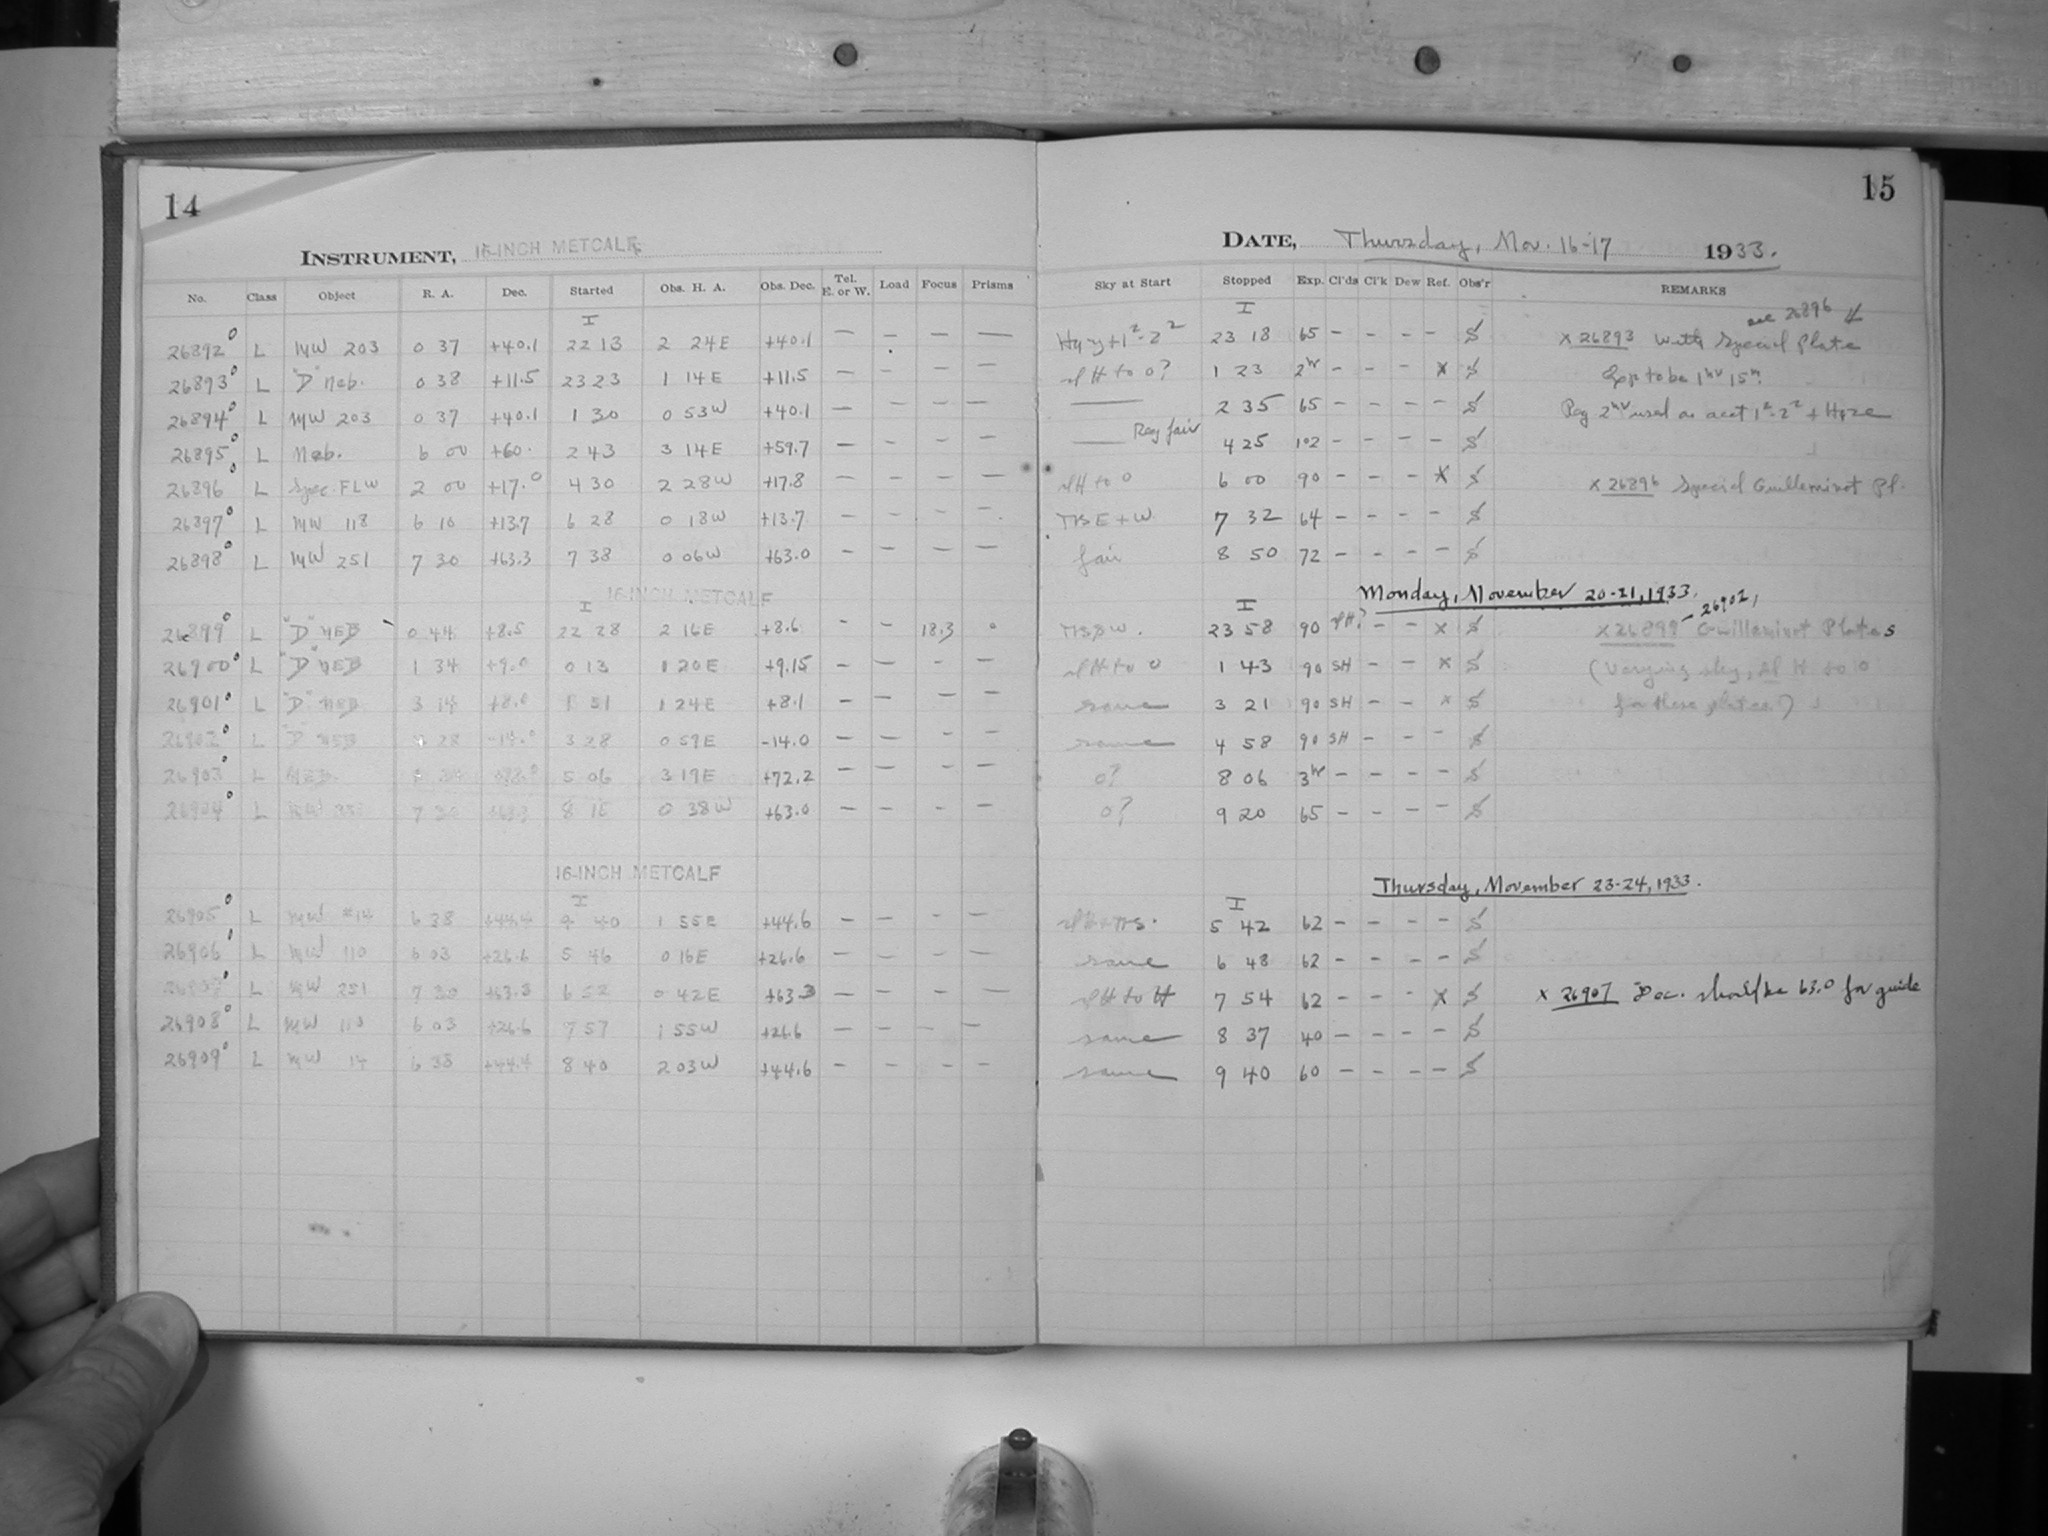 14
INSTRUMENT, 16-INCH METCALF
No. Class Object R. A. Dec. Started Obs. H. A. Obs. Dec. Tel. E. or W. Load Focus Prisms
I
26892 L MW 203 0 37 +40.1 22 13 2 24E +40.1 — — — —
26893 L "D" Neb. 0 38 +11.5 23 23 1 14E +11.5 — — — —
26894 L MW 203 0 37 +40.1 1 30 0 53W +40.1 — — — —
26895 L Neb. 6 00 +60. 2 43 3 14E +59.7 — — — —
26896 L Spec. FLW 2 00 +17.0 4 30 2 28W +17.8 — — — —
26897 L MW 118 6 10 +13.7 6 28 0 18W +13.7 — — — —
26898 L MW 251 7 30 +63.3 7 38 0 06W +63.0 — — — —
16-INCH METCALF
I
26899 L "D" NEB 0 44 +8.5 22 28 2 16E +8.6 — — 18.3 0
26900 L "D" NEB 1 34 +9.0 0 13 1 20E +9.15 — — — —
26901 L "D" NEB 3 14 +8.0 1 51 1 24E +8.1 — — — —
26902 L "D" NEB 28 -14.0 3 28 0 59E -14.0 — — — —
26903 L NEB. 5 06 3 19E +72.2 — — — —
26904 L MW 7 30 +63.3 8 15 0 38W +63.0 — — — —
16-INCH METCALF
I
26905 L MW #14 6 38 +44.4 4 40 1 55E +44.6 — — — —
26906 L MW 110 6 03 +26.6 5 46 0 16E +26.6 — — — —
26907 L MW 251 7 30 +63.3 6 52 0 42E +63.3 — — — —
26908 L MW 110 6 03 +26.6 7 57 1 55W +26.6 — — — —
26909 L MW 14 6 38 +44.4 8 40 2 03W +44.6 — — — —
15
DATE, Thursday, Nov. 16-17 1933.
Sky at Start Stopped Exp. Cl'ds Cl'k Dew Ref. Obs'r REMARKS
I see 26896
Hazy+1²-2² 23 18 65 — — — — S x 26893 with Special Plate
sl H to 0? 1 23 2hr — — — x S Exp to be 1hr 15m.
—— 2 35 65 — — — — S Reg 2hr used as acct 1²-2² + Haze
—— Reg fair 4 25 102 — — — — S
sl H to 0 6 00 90 — — — x S x 26896 Special Guilleminot Pl.
THS E+W 7 32 64 — — — — S
fair 8 50 72 — — — — S
Monday, November 20-21, 1933.
I
THS W. 23 58 90 sl H? — — x S x 26899 - 26902, Guilleminot Plates
sl H to 0 1 43 90 SH — — x S (Varying sky, sl H to 0
same 3 21 90 SH — — x S for these plates?)
same 4 58 90 SH — — — S
0? 8 06 3hr — — — — S
0? 9 20 65 — — — — S
Thursday, November 23-24, 1933.
I
5 42 62 — — — — S
same 6 48 62 — — — — S
sl H to H 7 54 62 — — — x S x 26907 Dec. should be 63.0 for guide
same 8 37 40 — — — — S
same 9 40 60 — — — — S